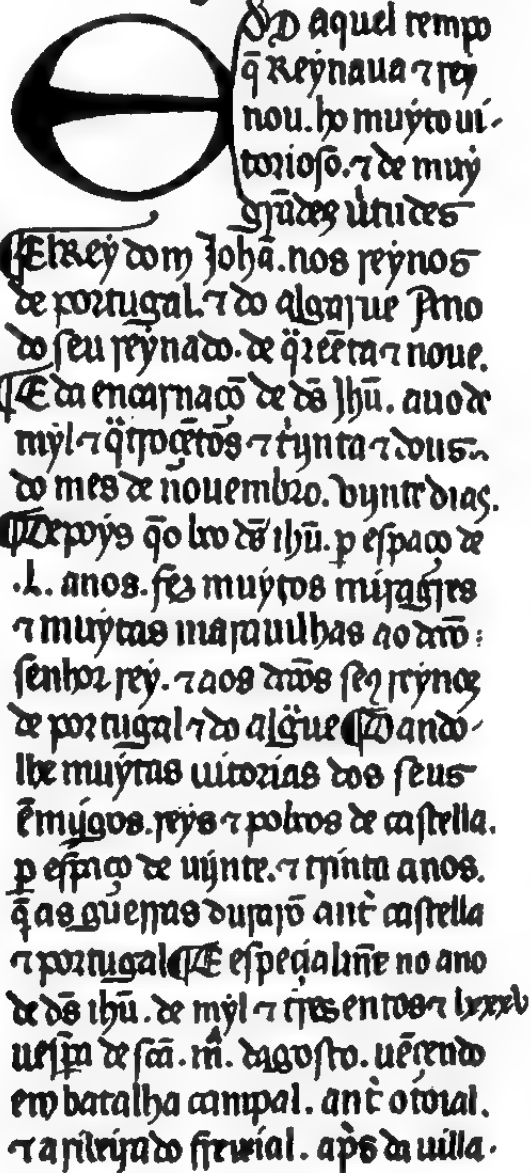 EM aquel tempo
q̄ Reynaua ⁊ rey
nou. ho muyto ui-
torioso. ⁊ de muy
grādes u̓tudes
¶ElRey dom Johā. nos reynos
de portugal. ⁊ do algarue Ano
do seu reynado. de q̈reēta ⁊ noue.
¶E da encarnaçō de dō̄s Jhū. ano de
myl ⁊ q̈troçētos ⁊ trijnta ⁊ dous..
do mes de nouembro. vijnte dias.
¶Depoys q̄o boo dō̄s ihū. ꝑ espaço de
.L. anos. fez muytos miragres
⁊ muytas marauilhas ao dc̄o
senhor rey. ⁊ aos dc̄os seꝯ reynos
de portugal ⁊ do alg̈ue ¶Dando-
lhe muytas uitorias dos seus
ēmijgos. reys ⁊ poboos de castella.
ꝑ espaço de uijnte. ⁊ trinta anos.
q̄ as guerras durarō ant̓ castella
⁊ portugal ¶E especialmēte no ano
de dō̄s ihū. de myl ⁊ tresentos ⁊ lxxxv
uespꝑa de scā. m̄. dagosto. uēçendo
em batalha campal. ant̓
⁊ aap̄s da uilla.